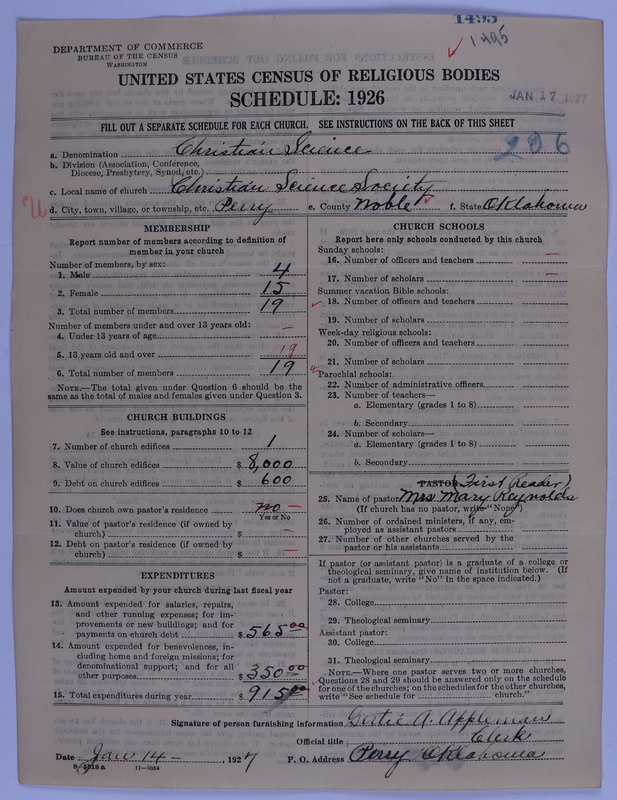 1495
1495
DEPARTMENT OF COMMERCE
BUREAU OF THE CENSUS
WASHINGTON
UNITED STATES CENSUS OF RELIGIOUS BODIES
SCHEDULE: 1926
JAN 17 1927
FILL OUT A SEPARATE SCHEDULE FOR EACH CHURCH. SEE INSTRUCTIONS ON THE BACK OF THIS SHEET
206
a. Denomination Christian Science
b. Division (Association, Conference,
Diocese, Presbytery, Synod, etc.)
c. Local name of church Christian Science Society
U d. City, town, village, or township, etc. Perry e. County Noble f. State Oklahoma
MEMBERSHIP
Report number of members according to definition of
member in your church
Number of members, by sex:
1. Male 4
2. Female 15
3. Total number of members 19
Number of members under and over 13 years old:
4. Under 13 years of age –
5. 13 years old and over 19
6. Total number of members 19
NOTE.—The total given under Question 6 should be the
same as the total of males and females given under Question 3.
CHURCH BUILDINGS
See instructions, paragraphs 10 to 12
7. Number of church edifices 1
8. Value of church edifices $ 8,000
9. Debt on church edifices $ 600
10. Does church own pastor's residence no –
Yes or No
11. Value of pastor's residence (if owned by
church) $ –
12. Debt on pastor's residence (if owned by
church) $ –
EXPENDITURES
Amount expended by your church during last fiscal year
13. Amount expended for salaries, repairs,
and other running expenses; for im-
provements or new buildings; and for
payments on church debt $ 565.00
14. Amount expended for benevolences, in-
cluding home and foreign missions; for
denominational support; and for all
other purposes $ 350.00
15. Total expenditures during year $ 915.00
CHURCH SCHOOLS
Report here only schools conducted by this church
Sunday schools:
16. Number of officers and teachers –
17. Number of scholars –
Summer vacation Bible schools:
18. Number of officers and teachers
19. Number of scholars
Week-day religious schools:
20. Number of officers and teachers
21. Number of scholars
Parochial schools:
22. Number of administrative officers
23. Number of teachers—
a. Elementary (grades 1 to 8)
b. Secondary
24. Number of scholars—
a. Elementary (grades 1 to 8)
b. Secondary
PASTOR (First Reader)
25. Name of pastor Mrs Mary Reynolds
(If church has no pastor, write "None")
26. Number of ordained ministers, if any, em-
ployed as assistant pastors
27. Number of other churches served by the
pastor or his assistants
If pastor (or assistant pastor) is a graduate of a college or
theological seminary, give name of institution below. (If
not a graduate, write "No" in the space indicated.)
Pastor:
28. College
29. Theological seminary
Assistant pastor:
30. College
31. Theological seminary
NOTE.—Where one pastor serves two or more churches,
Questions 28 and 29 should be answered only on the schedule
for one of the churches; on the schedules for the other churches,
write "See schedule for church."
Signature of person furnishing information Gertie A. Appleman
Official title Clerk
Date Jan 14 – , 1927 P. O. Address Perry Oklahoma
8-5518 a 11—9054